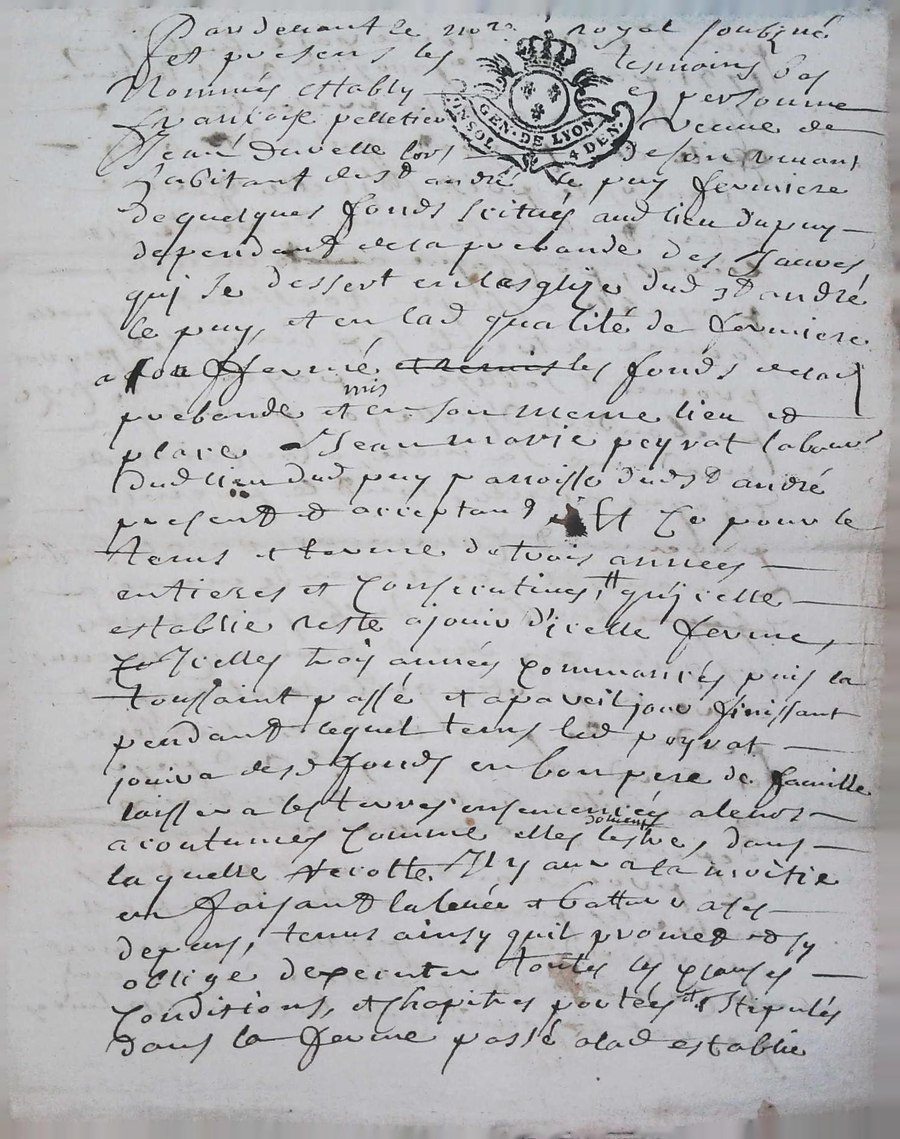 Pardevant le nore royal soubzné
et presens les tesmoins bas
Nommés establÿ en personne
françoise pelletier veuve de
Jean Duvelle lors de son vivant
habitant de st andré le puy fermiere
de quelques fonds scitués aud lieu dupuy
dependant de la prebande des Jauves
qui se dessert en lesglize dud st andré
le puy, et en lad qualité de fermiere
a sou affermé et remis les fonds de lad
mis
prebande et en son meme lieu et
place Jean marie peyrat labour
dud lieu dud puy parroisse dud st andré
present et acceptant Et ce pour le
tems et terme de trois années
entieres et consecutives, qu'icelle
establie reste a jouir d'icelle ferme,
Icelles trois années commancées puis la
toussaint passé et a pareil jour finissant
pendant lequel tems led peyrat
jouira desd fonds en bon pere de famille
laissera les terres ensemencées
acoutumés comme elles dans
laquelle recolte Il y aura la moitie
en faisant la levée et batture a ses
depens, tenus ainsy quil promet et sy
oblige dexecuter toutes les clauses
conditions, et chapitres portées et stipulés
dans la ferme passé a lad establie
GEN. DE LYON
4 DEN.
IN. SOL